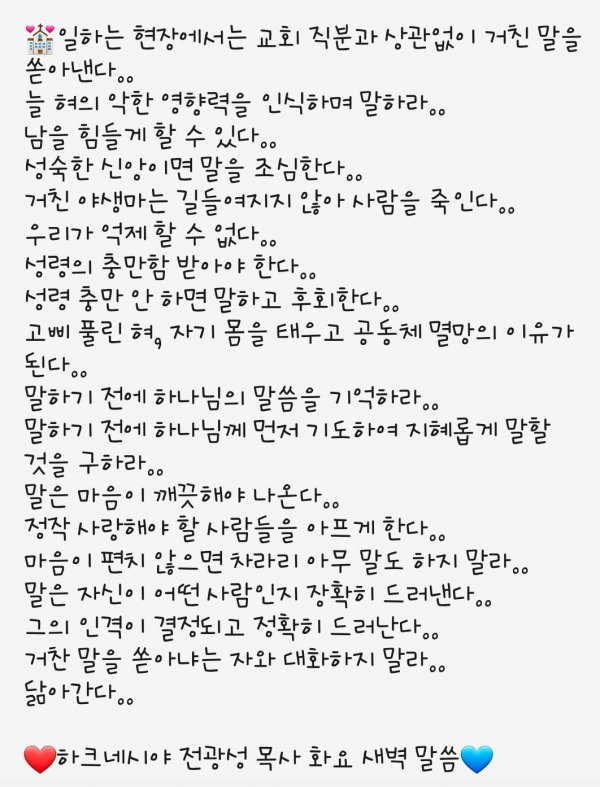 💒일하는 현장에서는 교회 직분과 상관없이 거친 말을
쏟아낸다。。
늘 혀의 악한 영향력을 인식하며 말하라。。
남을 힘들게 할 수 있다。。
성숙한 신앙이면 말을 조심한다。。
거친 야생마는 길들여지지 않아 사람을 죽인다。。
우리가 억제 할 수 없다。。
성령의 충만함 받아야 한다。。
성령 충만 안 하면 말하고 후회한다。。
고삐 풀린 혀, 자기 몸을 태우고 공동체 멸망의 이유가
된다。。
말하기 전에 하나님의 말씀을 기억하라。。
말하기 전에 하나님께 먼저 기도하여 지혜롭게 말할
것을 구하라。。
말은 마음이 깨끗해야 나온다。。
정작 사랑해야 할 사람들을 아프게 한다。。
마음이 편치 않으면 차라리 아무 말도 하지 말라。。
말은 자신이 어떤 사람인지 장확히 드러낸다。。
그의 인격이 결정되고 정확히 드러난다。。
거찬 말을 쏟아냐는 자와 대화하지 말라。。
닮아간다。。
❤️하크네시야 전광성 목사 화요 새벽 말씀💙